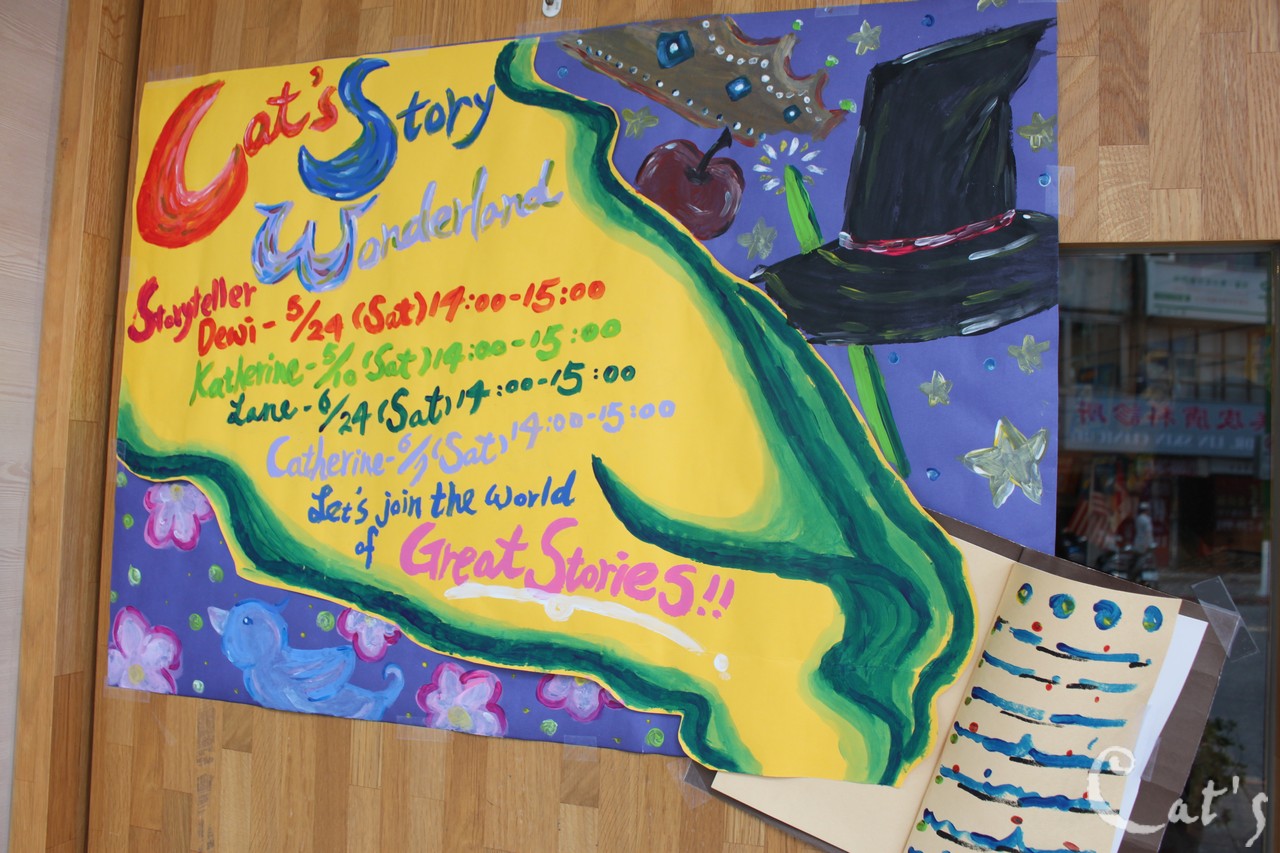 Cat's Story
Wonderland
Storyteller
Dewi - 5/24 (Sat) 14:00-15:00
Katherine - 5/10 (Sat) 14:00-15:00
Lane - 6/24 (Sat) 14:00-15:00
Catherine - 6/7 (Sat) 14:00-15:00
Let's join the world
of Great Stories!!
Cat's